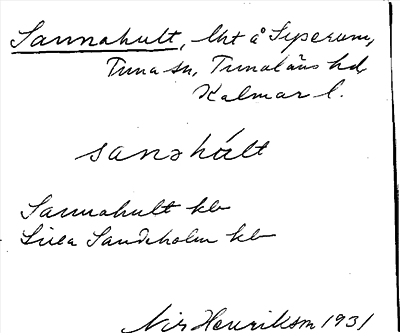 Sannahult, lht å Syserum,
Tuna sn, Tunaläns hd,
Kalmar l.
sanəhált
Sannahult kb
Lilla Sandeholm kb
Nils Henriksson 1931